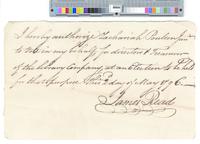 I hereby authorize Zachariah Poulson Junr.
to Vote in my behalf for directors & Treasurer
of the Library Company, at an Election to be held
for that purpose this 2 day of May 1796.—
James Read